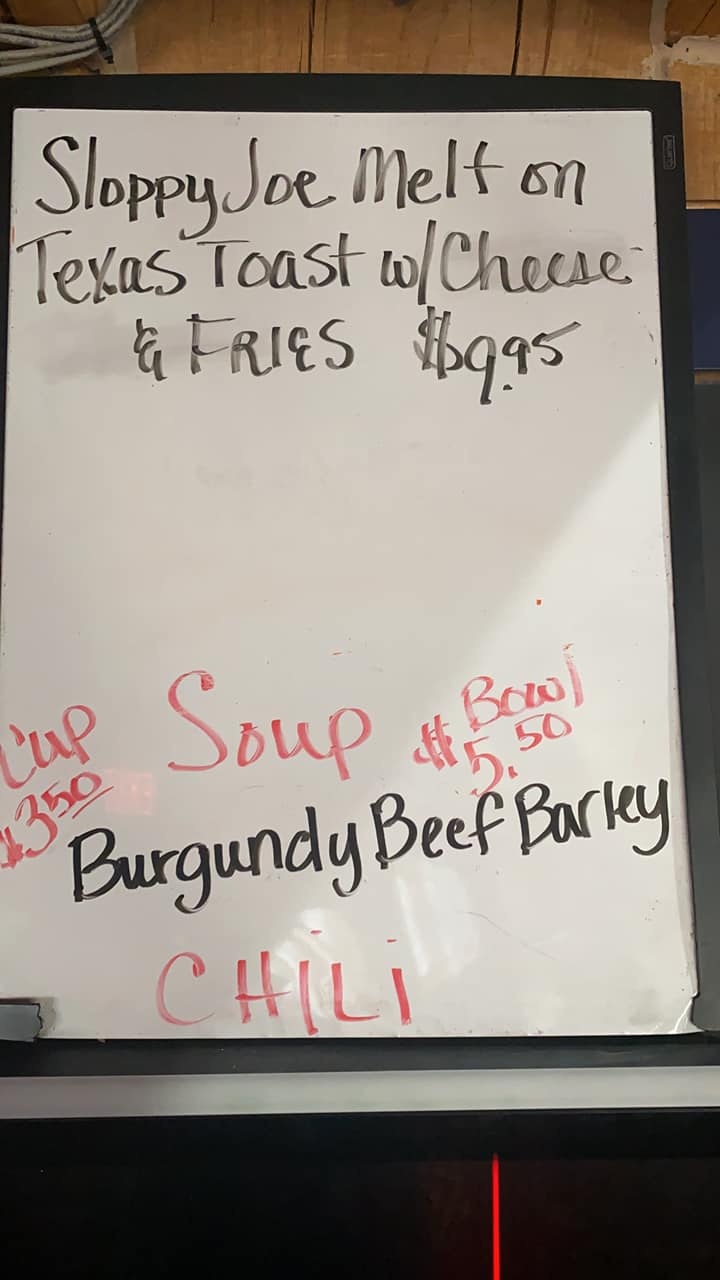 Sloppy Joe Melt on
Texas Toast w/Cheese
& FRIES $9.95
Cup Soup Bowl
$3.50 $5.50
Burgundy Beef Barley
CHiLi